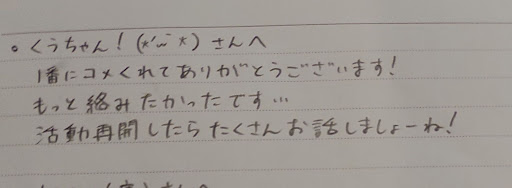 。くうちゃん！(*'ω'*)さんへ
1番にコメくれてありがとうございます！
もっと絡みたかったです…
活動再開したらたくさんお話しましょーね！